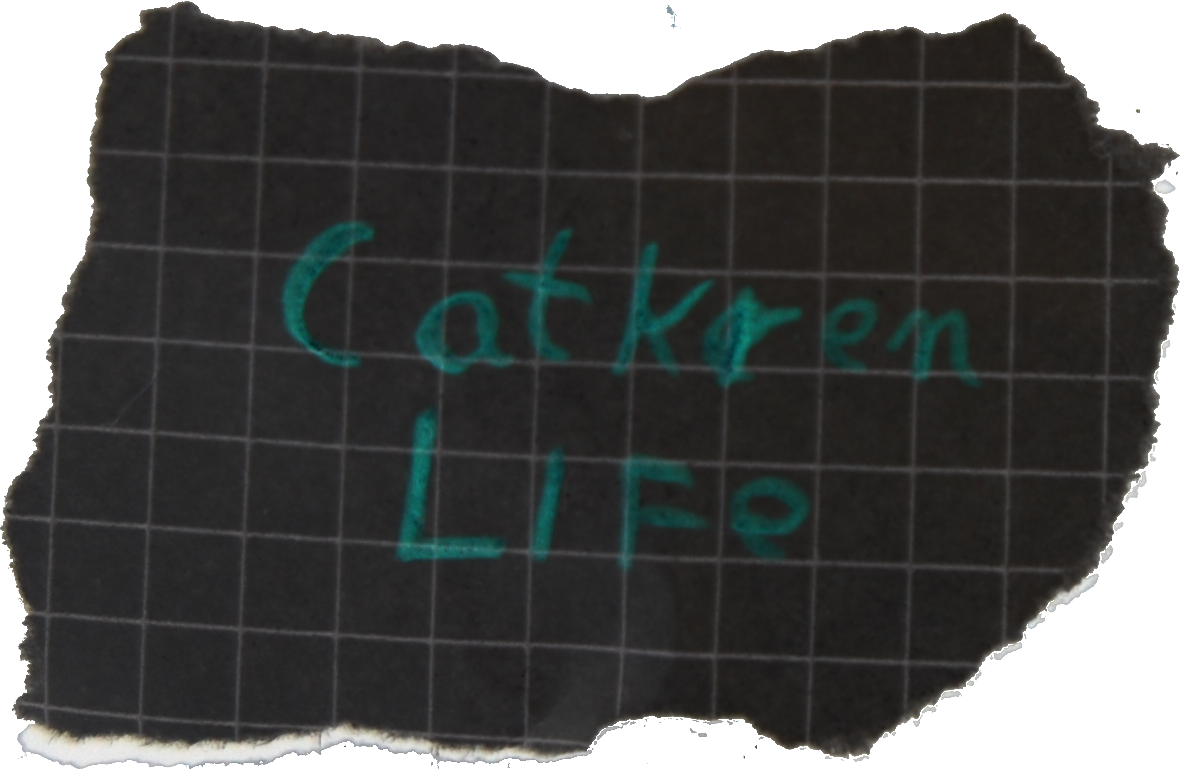 Catkren
LIFe